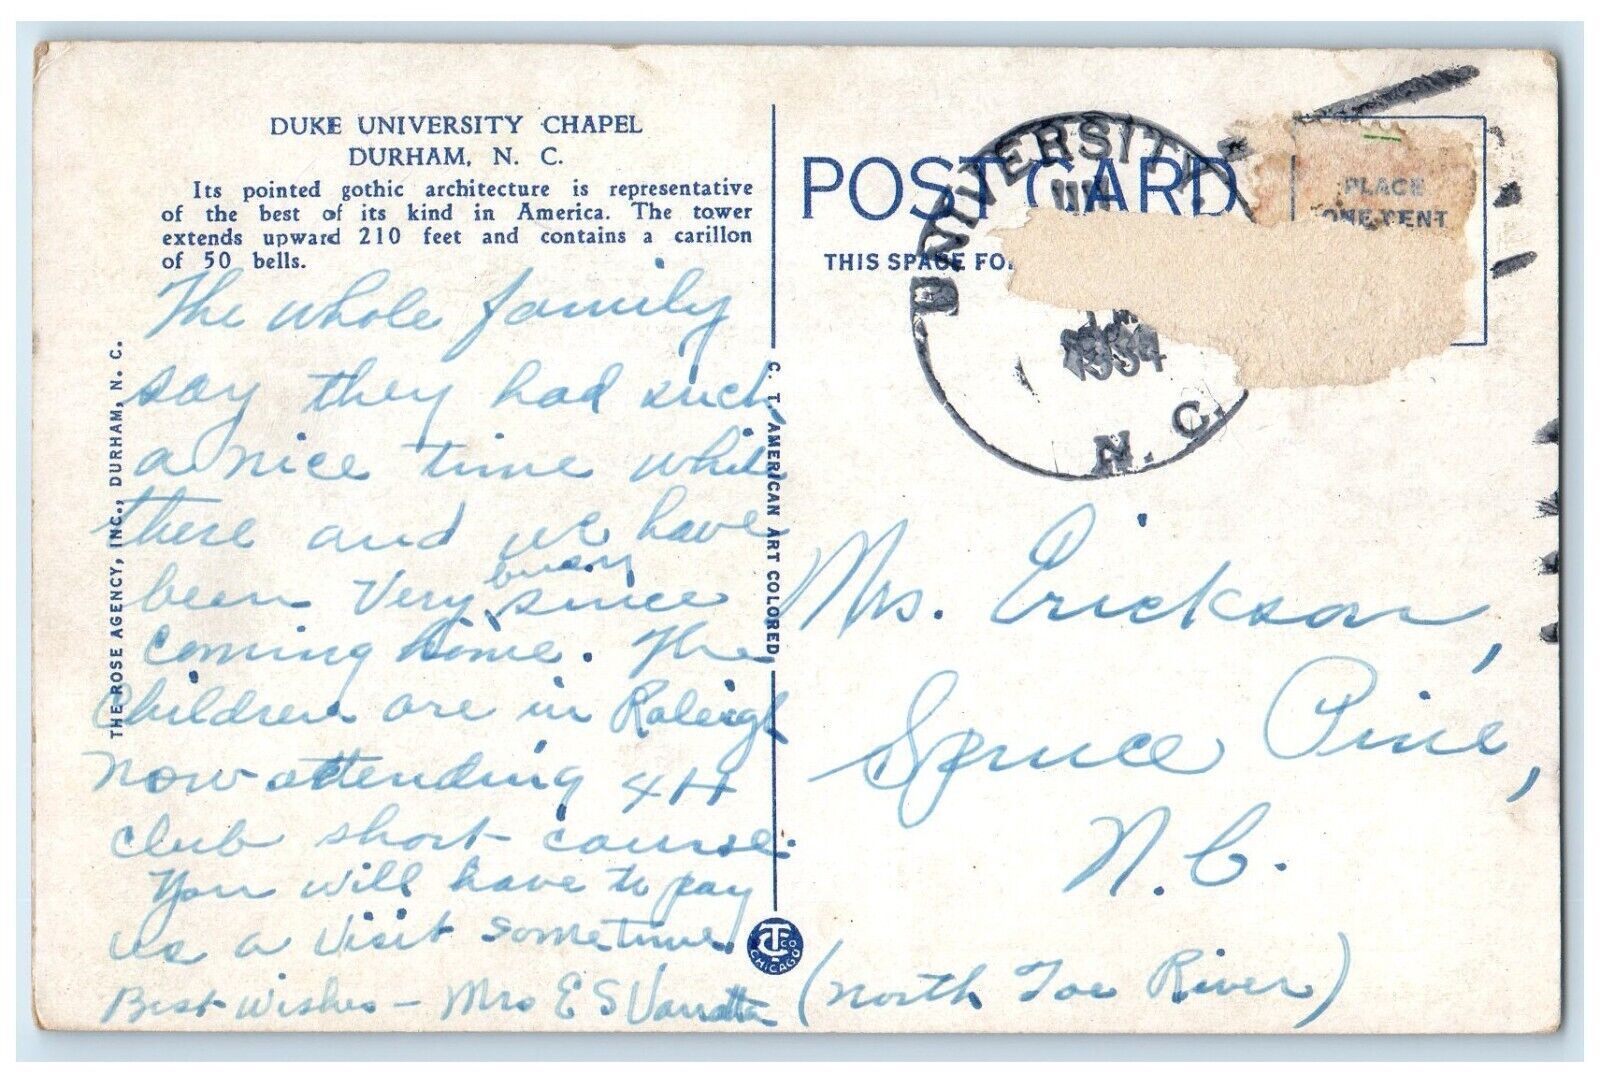 DUKE UNIVERSITY CHAPEL
DURHAM, N. C.
Its pointed gothic architecture is representative
of the best of its kind in America. The tower
extends upward 210 feet and contains a carillon
of 50 bells.
The whole family
say they had such
a nice time while
there and we have
been Very busy since
coming home. The
Children are in Raleigh
now attending 4H
club short course.
You will have to pay
us a visit sometime.
Best Wishes - Mrs E S
THE ROSE AGENCY, INC., DURHAM, N. C.
C. T. AMERICAN ART COLORED
CT CO
CHICAGO
POST CARD
THIS SPACE FO
UNIVERSITY
1934
N. C.
PLACE
ONE CENT
Mrs. Erickson,
Spruce Pine,
N. C.
(North Toe River)